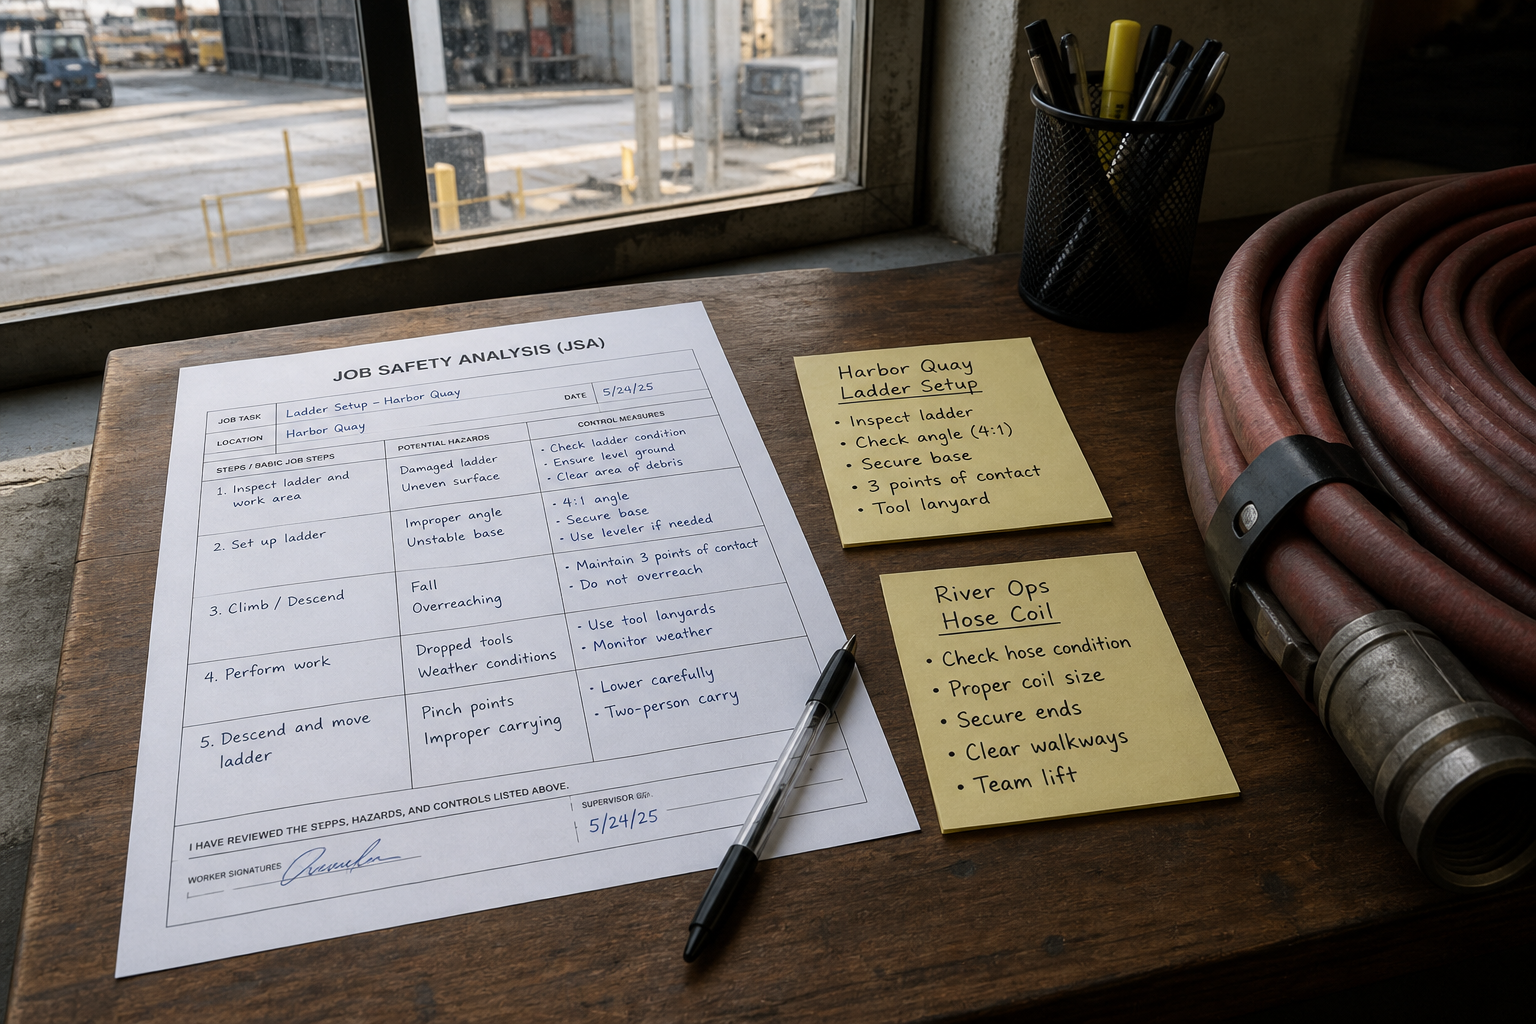 JOB SAFETY ANALYSIS (JSA)
JOB TASK
Ladder Setup – Harbor Quay
DATE
5/24/25
LOCATION
Harbor Quay
STEPS / BASIC JOB STEPS
POTENTIAL HAZARDS
CONTROL MEASURES
1. Inspect ladder and
work area
Damaged ladder
Uneven surface
• Check ladder condition
• Ensure level ground
• Clear area of debris
2. Set up ladder
Improper angle
Unstable base
• 4:1 angle
• Secure base
• Use leveler if needed
3. Climb / Descend
Fall
Overreaching
• Maintain 3 points of contact
• Do not overreach
4. Perform work
Dropped tools
Weather conditions
• Use tool lanyards
• Monitor weather
5. Descend and move
ladder
Pinch points
Improper carrying
• Lower carefully
• Two-person carry
I HAVE REVIEWED THE SEPPS, HAZARDS, AND CONTROLS LISTED ABOVE.
WORKER SIGNATURES
SUPERVISOR
5/24/25
Harbor Quay
Ladder Setup
• Inspect ladder
• Check angle (4:1)
• Secure base
• 3 points of contact
• Tool lanyard
River Ops
Hose Coil
• Check hose condition
• Proper coil size
• Secure ends
• Clear walkways
• Team lift